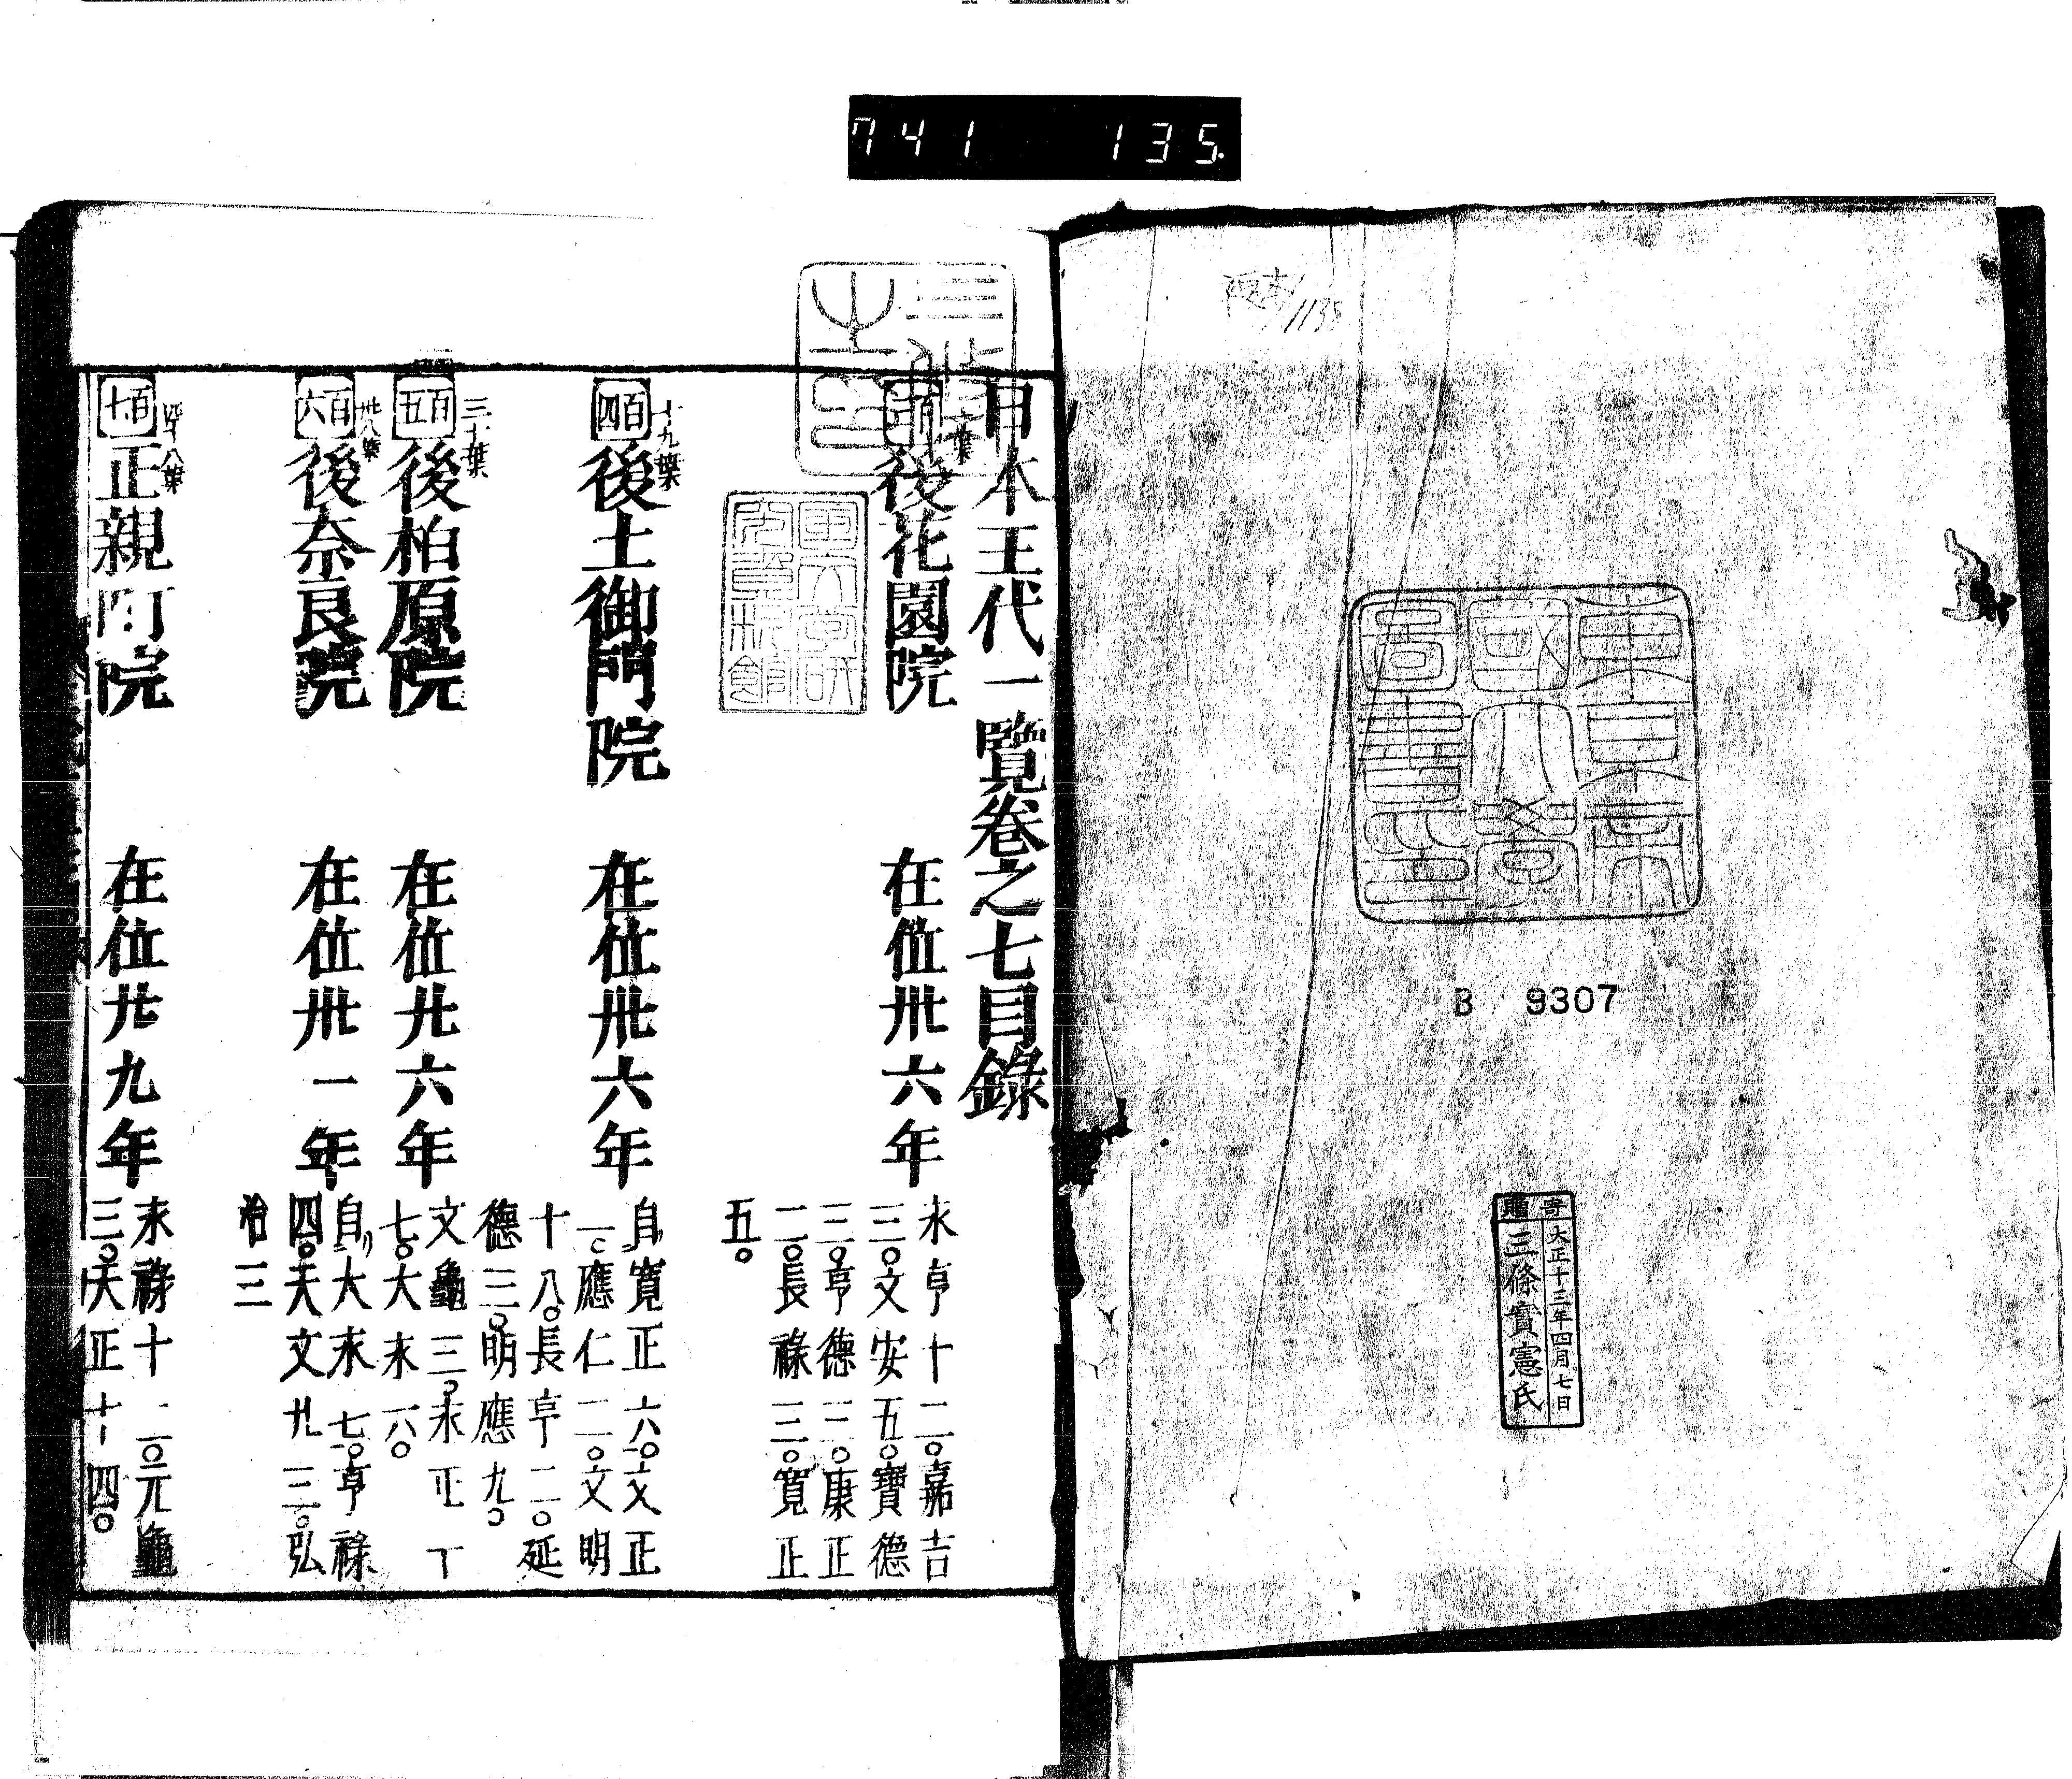 741 135.
東京帝
國大學
圖書印
B 9307
寄贈
大正十三年四月七日
三條實憲氏
日本王代一覽卷之七目錄
後花園院 在位卅六年
永享十二○嘉吉
三○文安五○寶德
三○享德三○康正
二○長祿三○寬正
五○
百四 十九葉
後土御門院 在位卅六年
自寬正六○文正
一○應仁二○文明
十八○長享二○延
德三○明應九○
百五 三十葉
後柏原院 在位廿六年
文龜三○永正十
七○大永六○
百六 卅八葉
後奈良院 在位卅一年
自大永七○享祿
四○天文廿三○弘
治三
百七 四十八葉
正親町院 在位廿九年
永祿十二○元龜
三○天正十四○